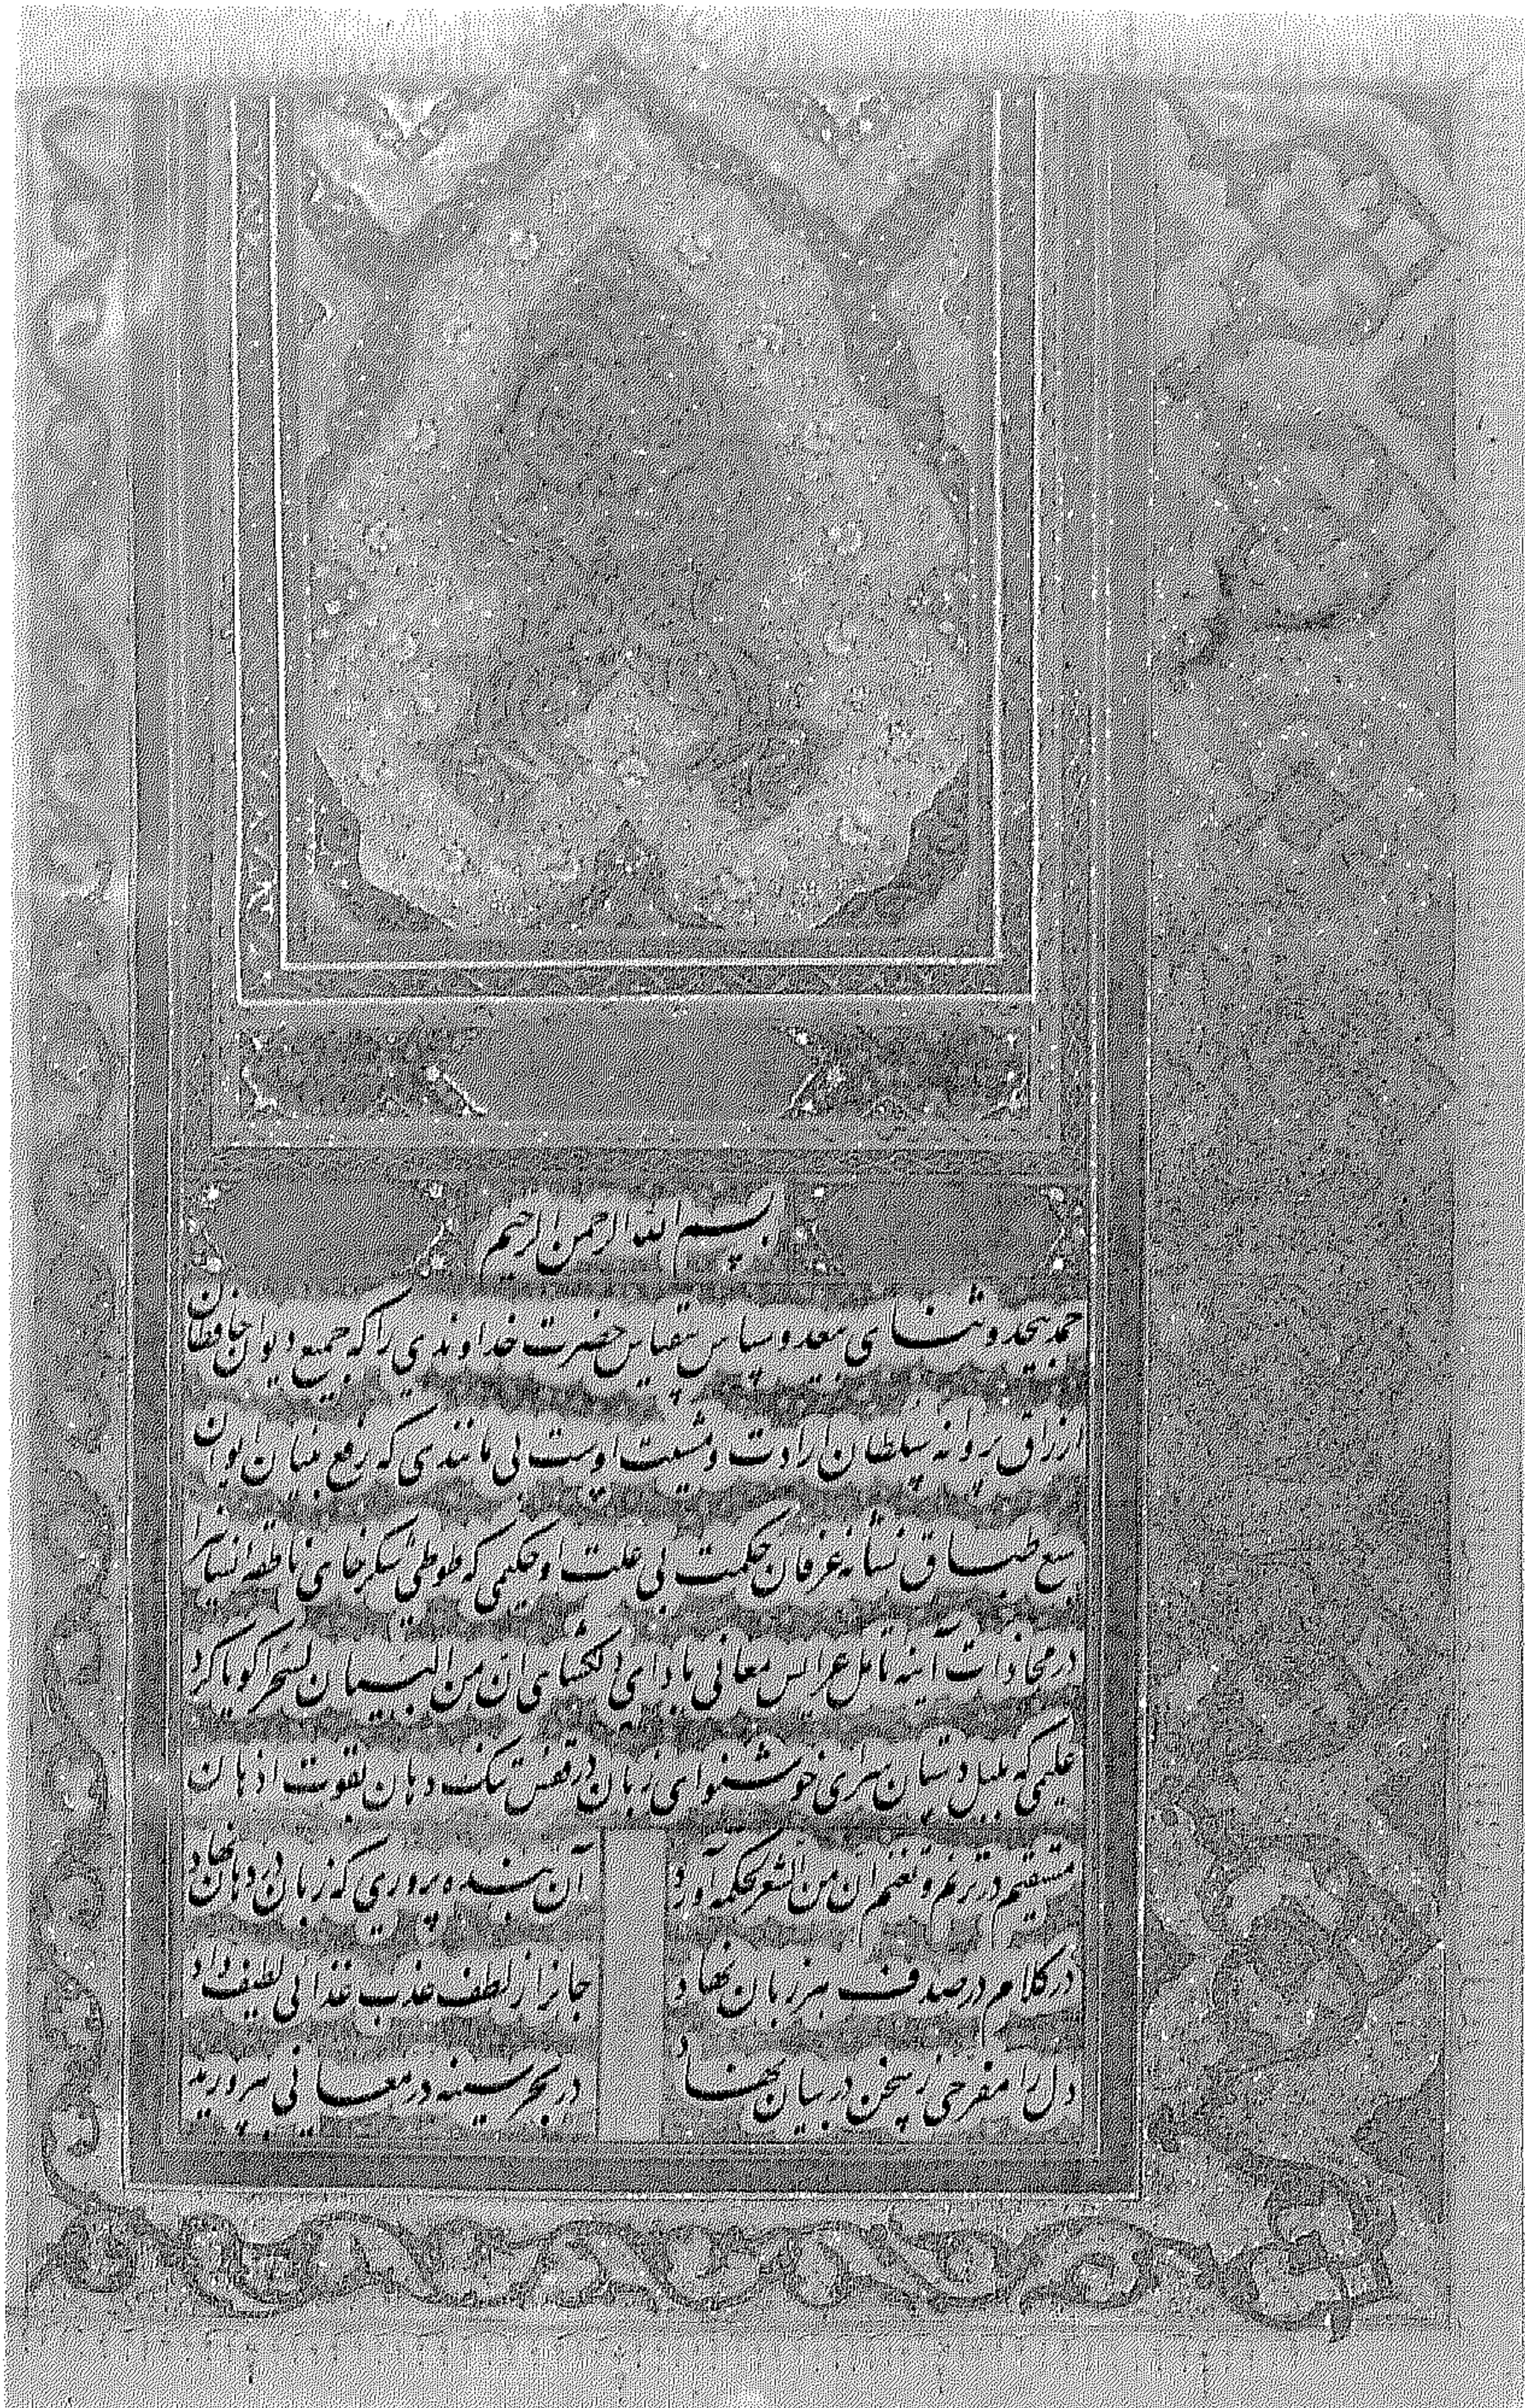 بسم الله الرحمن الرحیم
حمد بیحد و ثنای بیعد و سپاس بیقیاس حضرت خداوندی را که جمیع دیوان حافظان
ارزاق پروانه سلطان ارادت و مشیت اوست بی مانندی که رفع بنیان ایوان
سبع طباق نشانه عرفان حکمت بی علت او حکیمی که طوطی شکرخای ناطقه انسانی را
در محاذات آینه تامل عرایس معانی بادای دلگشای ان من البیان لسحرا کویا کرد
علیمی که بلبل دستان سرای خوشنوای زبان در قفس تنک دهان بقوت اذهان
مستقیم در ترنم و تنغم ان من الشعر لحکمه آورد آن بنده پروری که زبان در دهان نهاد
در کلام در صدف هر زبان نهاد جانرا ز لطف عذب غذائی لطیف داد
دل را مفرحی ز سخن در بیان نهاد در بحر سینه در معانی بپرورید